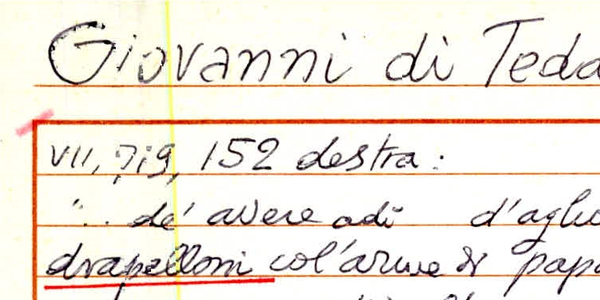 Giovanni di Teda
VII, 719, 152 destra:
"... de' avere adì d'aglu
drapelloni col'arme di papa